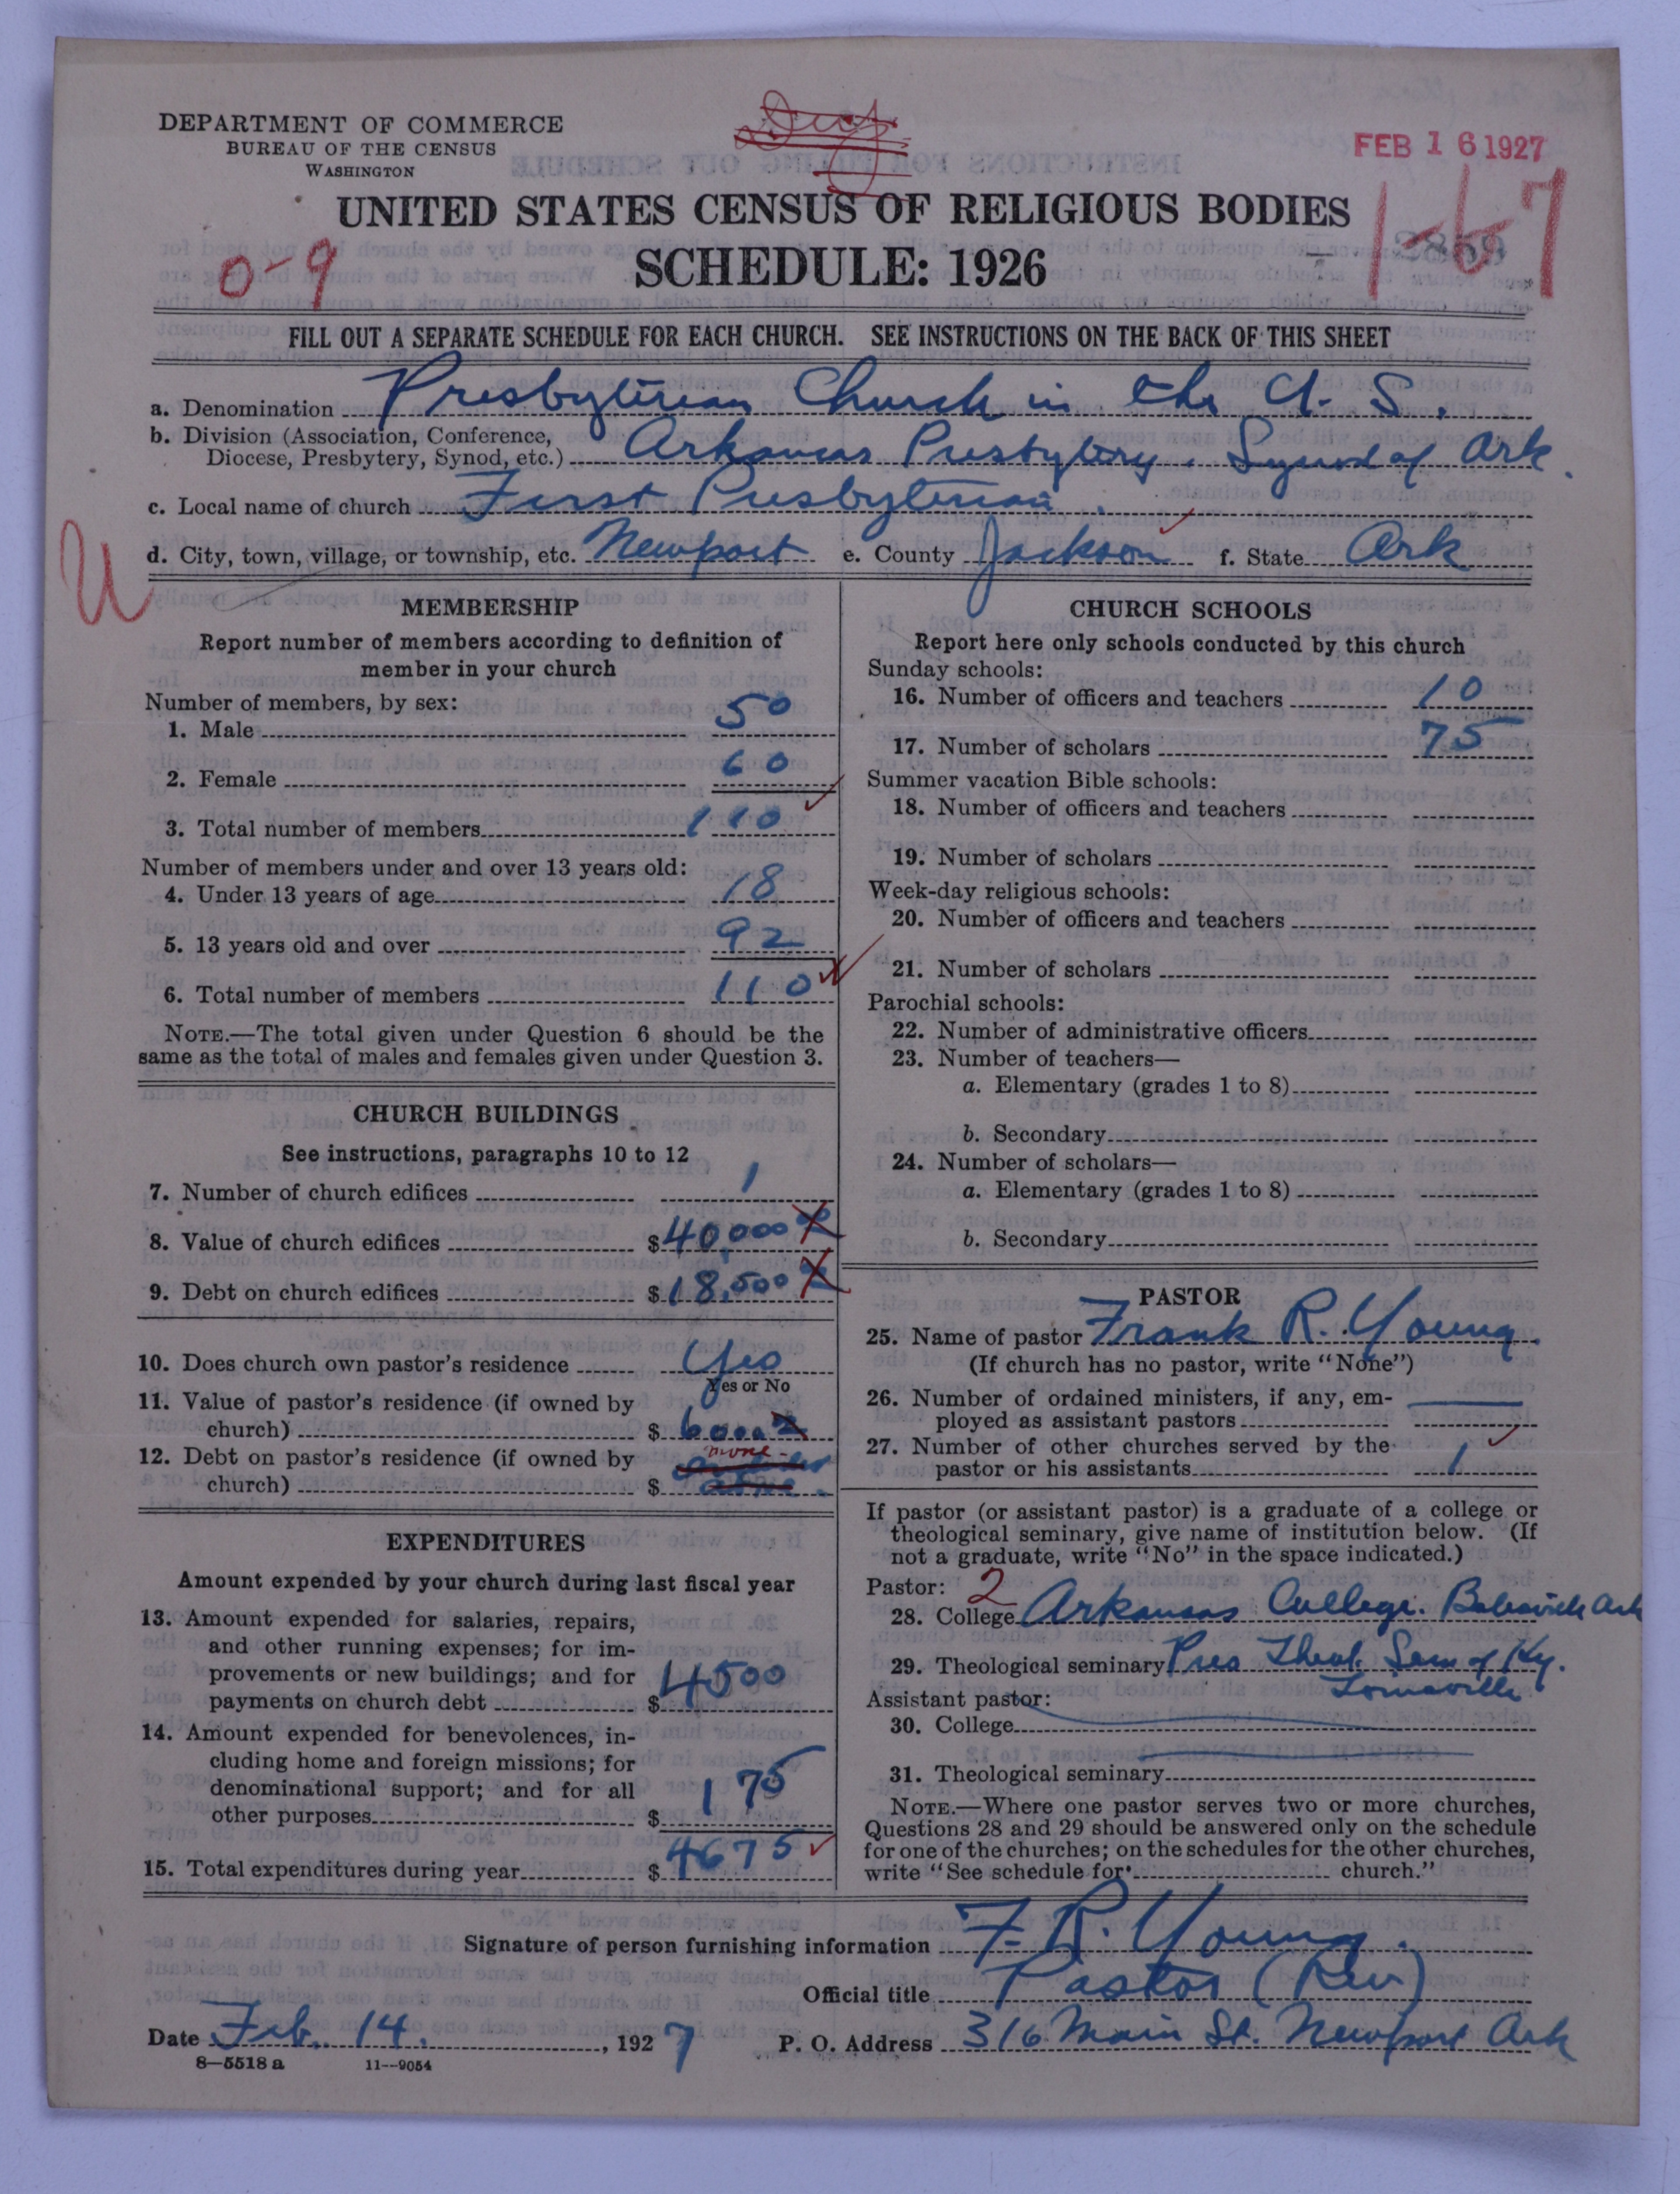 DEPARTMENT OF COMMERCE
BUREAU OF THE CENSUS
WASHINGTON
FEB 16 1927
UNITED STATES CENSUS OF RELIGIOUS BODIES
SCHEDULE: 1926
0-9
FILL OUT A SEPARATE SCHEDULE FOR EACH CHURCH. SEE INSTRUCTIONS ON THE BACK OF THIS SHEET
a. Denomination Presbyterian Church in the U. S.
b. Division (Association, Conference,
Diocese, Presbytery, Synod, etc.) Arkansas Presbytery. Synod of Ark.
c. Local name of church First Presbyterian
d. City, town, village, or township, etc. Newport e. County Jackson f. State Ark
U
MEMBERSHIP
Report number of members according to definition of
member in your church
Number of members, by sex:
1. Male 50
2. Female 60
3. Total number of members 110
Number of members under and over 13 years old:
4. Under 13 years of age 18
5. 13 years old and over 92
6. Total number of members 110
NOTE.—The total given under Question 6 should be the
same as the total of males and females given under Question 3.
CHURCH BUILDINGS
See instructions, paragraphs 10 to 12
7. Number of church edifices 1
8. Value of church edifices $40,000
9. Debt on church edifices $18,500
10. Does church own pastor's residence Yes
Yes or No
11. Value of pastor's residence (if owned by
church) $6000
12. Debt on pastor's residence (if owned by none
church) $
EXPENDITURES
Amount expended by your church during last fiscal year
13. Amount expended for salaries, repairs,
and other running expenses; for im-
provements or new buildings; and for
payments on church debt $4500
14. Amount expended for benevolences, in-
cluding home and foreign missions; for
denominational support; and for all
other purposes $175
15. Total expenditures during year $4675
CHURCH SCHOOLS
Report here only schools conducted by this church
Sunday schools:
16. Number of officers and teachers 10
17. Number of scholars 75
Summer vacation Bible schools:
18. Number of officers and teachers
19. Number of scholars
Week-day religious schools:
20. Number of officers and teachers
21. Number of scholars
Parochial schools:
22. Number of administrative officers
23. Number of teachers—
a. Elementary (grades 1 to 8)
b. Secondary
24. Number of scholars—
a. Elementary (grades 1 to 8)
b. Secondary
PASTOR
25. Name of pastor Frank R. Young.
(If church has no pastor, write "None")
26. Number of ordained ministers, if any, em-
ployed as assistant pastors
27. Number of other churches served by the
pastor or his assistants 1
If pastor (or assistant pastor) is a graduate of a college or
theological seminary, give name of institution below. (If
not a graduate, write "No" in the space indicated.)
Pastor: 2
28. College Arkansas College. Batesville Ark
29. Theological seminary Pres Theol. Sem of Ky.
Louisville
Assistant pastor:
30. College
31. Theological seminary
NOTE.—Where one pastor serves two or more churches,
Questions 28 and 29 should be answered only on the schedule
for one of the churches; on the schedules for the other churches,
write "See schedule for church."
Signature of person furnishing information F. R. Young.
Official title Pastor (Rev)
Date Feb. 14., 1927 P. O. Address 316 Main St. Newport Ark
8—5518 a 11—9054